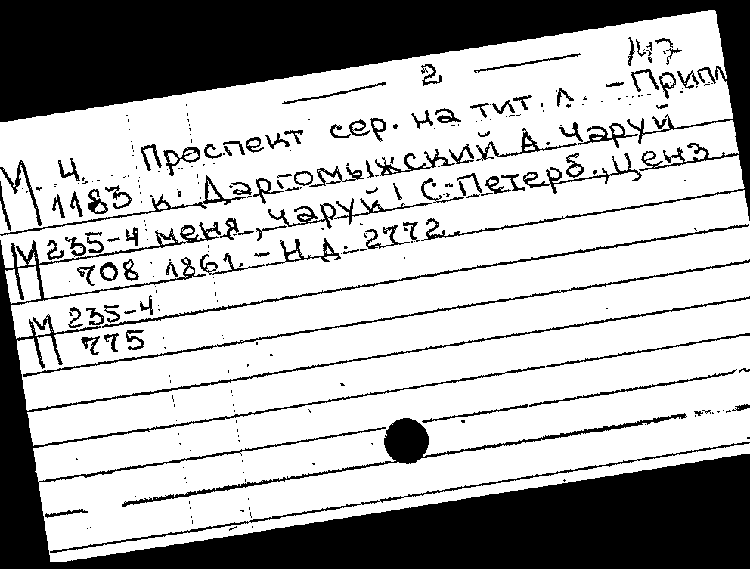 2
147
М. Ч. Проспект сер. на тит. л. – Припл
1183 к: Даргомыжский А. Чаруй
М 235-4 меня, чаруй! С.-Петерб., Ценз.
708 1861. – Н. Д. 2772.
М 235-4
775